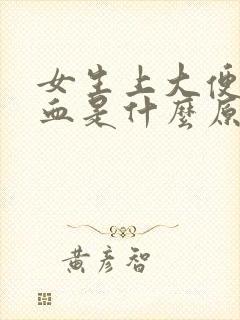 女生上大便
血是什麼原
黃彥智